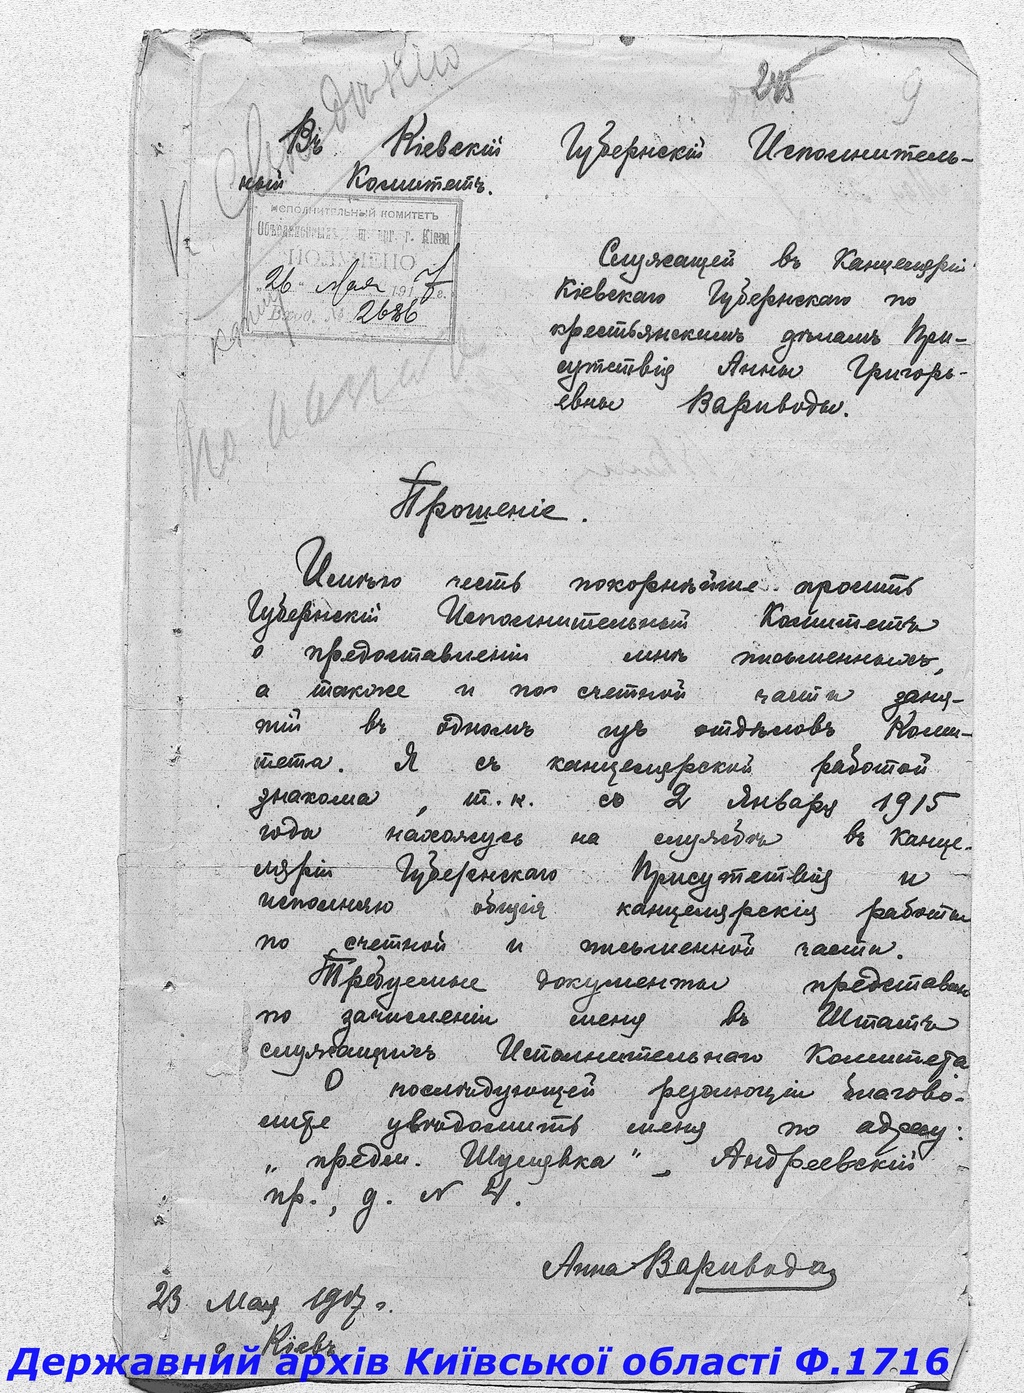 245
9
Въ Кіевскій Губернскій Исполнитель-
ный Комитетъ.
ИСПОЛНИТЕЛЬНЫЙ КОМИТЕТЪ
г. Кіева
ПОЛУЧЕНО
"26" Мая 1917 г.
Вход. № 2686
Служащей въ Канцеляріи
Кіевскаго Губернскаго по
крестьянскимъ дѣламъ При-
сутствія Анны Григорь-
евны Вариводы.
Прошеніе.
Имѣю честь покорнѣйше просить
Губернскій Исполнительный Комитетъ
о предоставленіи мнѣ письменныхъ,
а также и по счетной части заня-
тій въ одномъ изъ отдѣловъ Коми-
тета. Я съ канцелярской работой
знакома, т.к. съ 2 Января 1915
года нахожусь на службѣ въ Канце-
ляріи Губернскаго Присутствія и
исполняю общія канцелярскія работы
по счетной и письменной части.
Требуемые документы представлю
по зачисленіи меня въ Штатъ
служащихъ Исполнительнаго Комитета
О послѣдующей резолюціи благово-
лите увѣдомить меня по адресу:
„предм. Шулявка", Андреевскій
пр., д. № 4.
Анна Варивода
23 Мая 1917 г.
г. Кіевъ
Державний архів Київської області Ф.1716